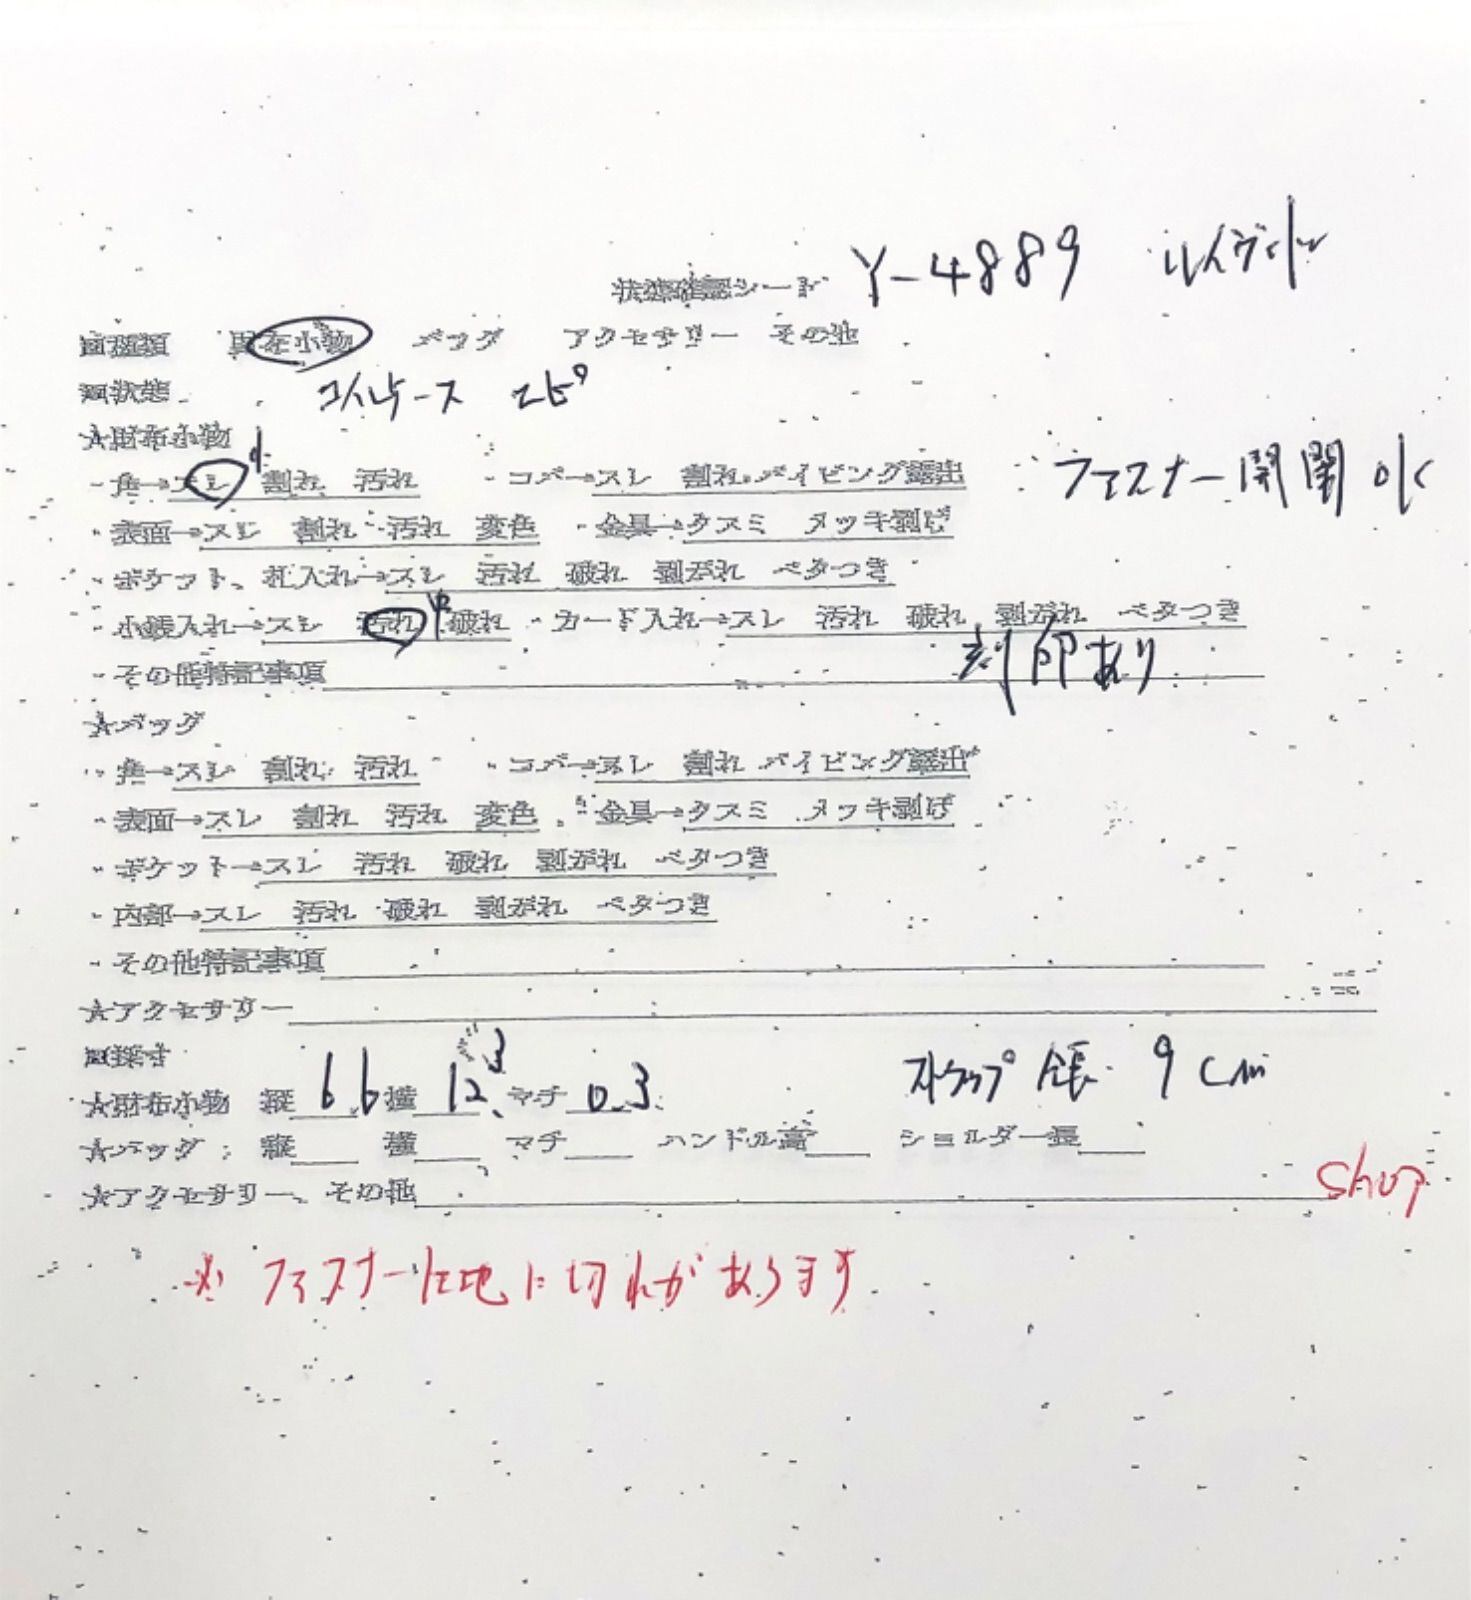 状態確認シート Y-4889 ルイヴィトン
■種類 財布小物 バッグ アクセサリー その他
■状態 コインケース エピ
★財布小物
・角→スレ 小 割れ 汚れ ・コバ→スレ 割れ パイピング露出 ファスナー開閉 OK
・表面→スレ 割れ 汚れ 変色 ・金具→クスミ メッキ剥げ
・ポケット、札入れ→スレ 汚れ 破れ 剥がれ ベタつき
・小銭入れ→スレ 汚れ 破れ ・カード入れ→スレ 汚れ 破れ 剥がれ ベタつき
・その他特記事項 刻印あり
★バッグ
・角→スレ 割れ 汚れ ・コバ→スレ 割れ パイピング露出
・表面→スレ 割れ 汚れ 変色 ・金具→クスミ メッキ剥げ
・ポケット→スレ 汚れ 破れ 剥がれ ベタつき
・内部→スレ 汚れ 破れ 剥がれ ベタつき
・その他特記事項
★アクセサリー
■採寸
★財布小物 縦 6.6 横 12.3 マチ 0.3 ストラップ 全長 9cm
★バッグ 縦 横 マチ ハンドル高 ショルダー長
★アクセサリー、その他 shop
※ファスナー生地に切れがあります